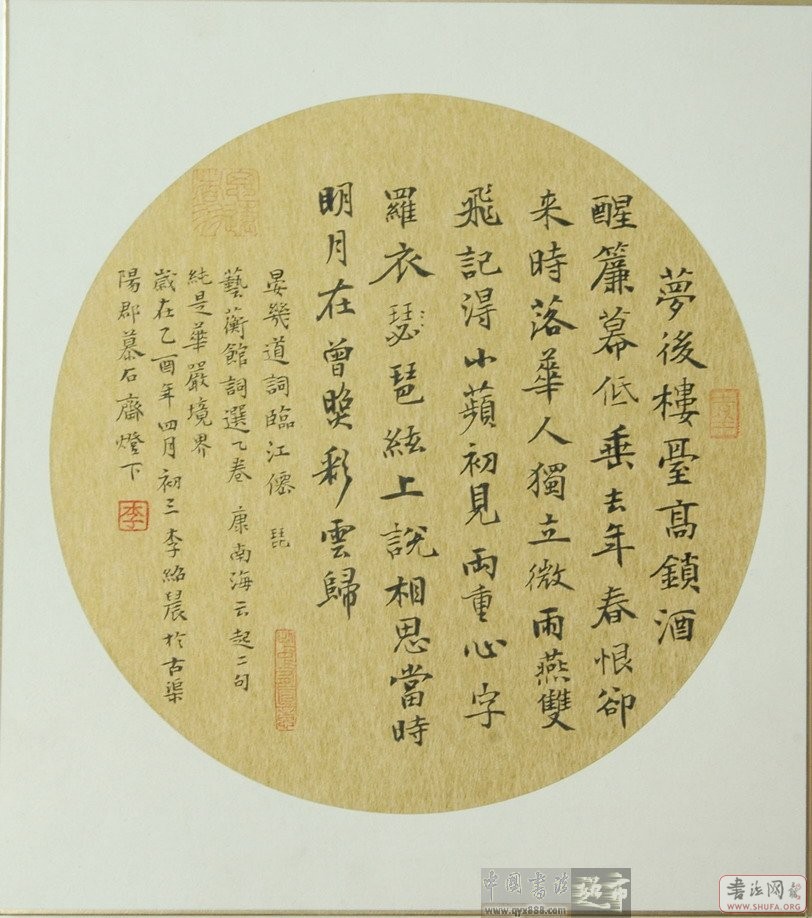 夢後樓臺高鎖酒
醒簾幕低垂去年春恨卻
来時落華人獨立微雨燕雙
飛記得小蘋初見兩重心字
羅衣瑟琶絃上說相思當時
明月在曾照彩雲歸
晏幾道詞臨江僊 琵
藝蘅館詞選乙卷 康南海云起二句
純是華嚴境界
歲在乙酉年四月初三李紹晨於古渠
陽郡慕石齋燈下
李
中国书法超市
www.qyx888.com
書法网
WWW.SHUFA.ORG